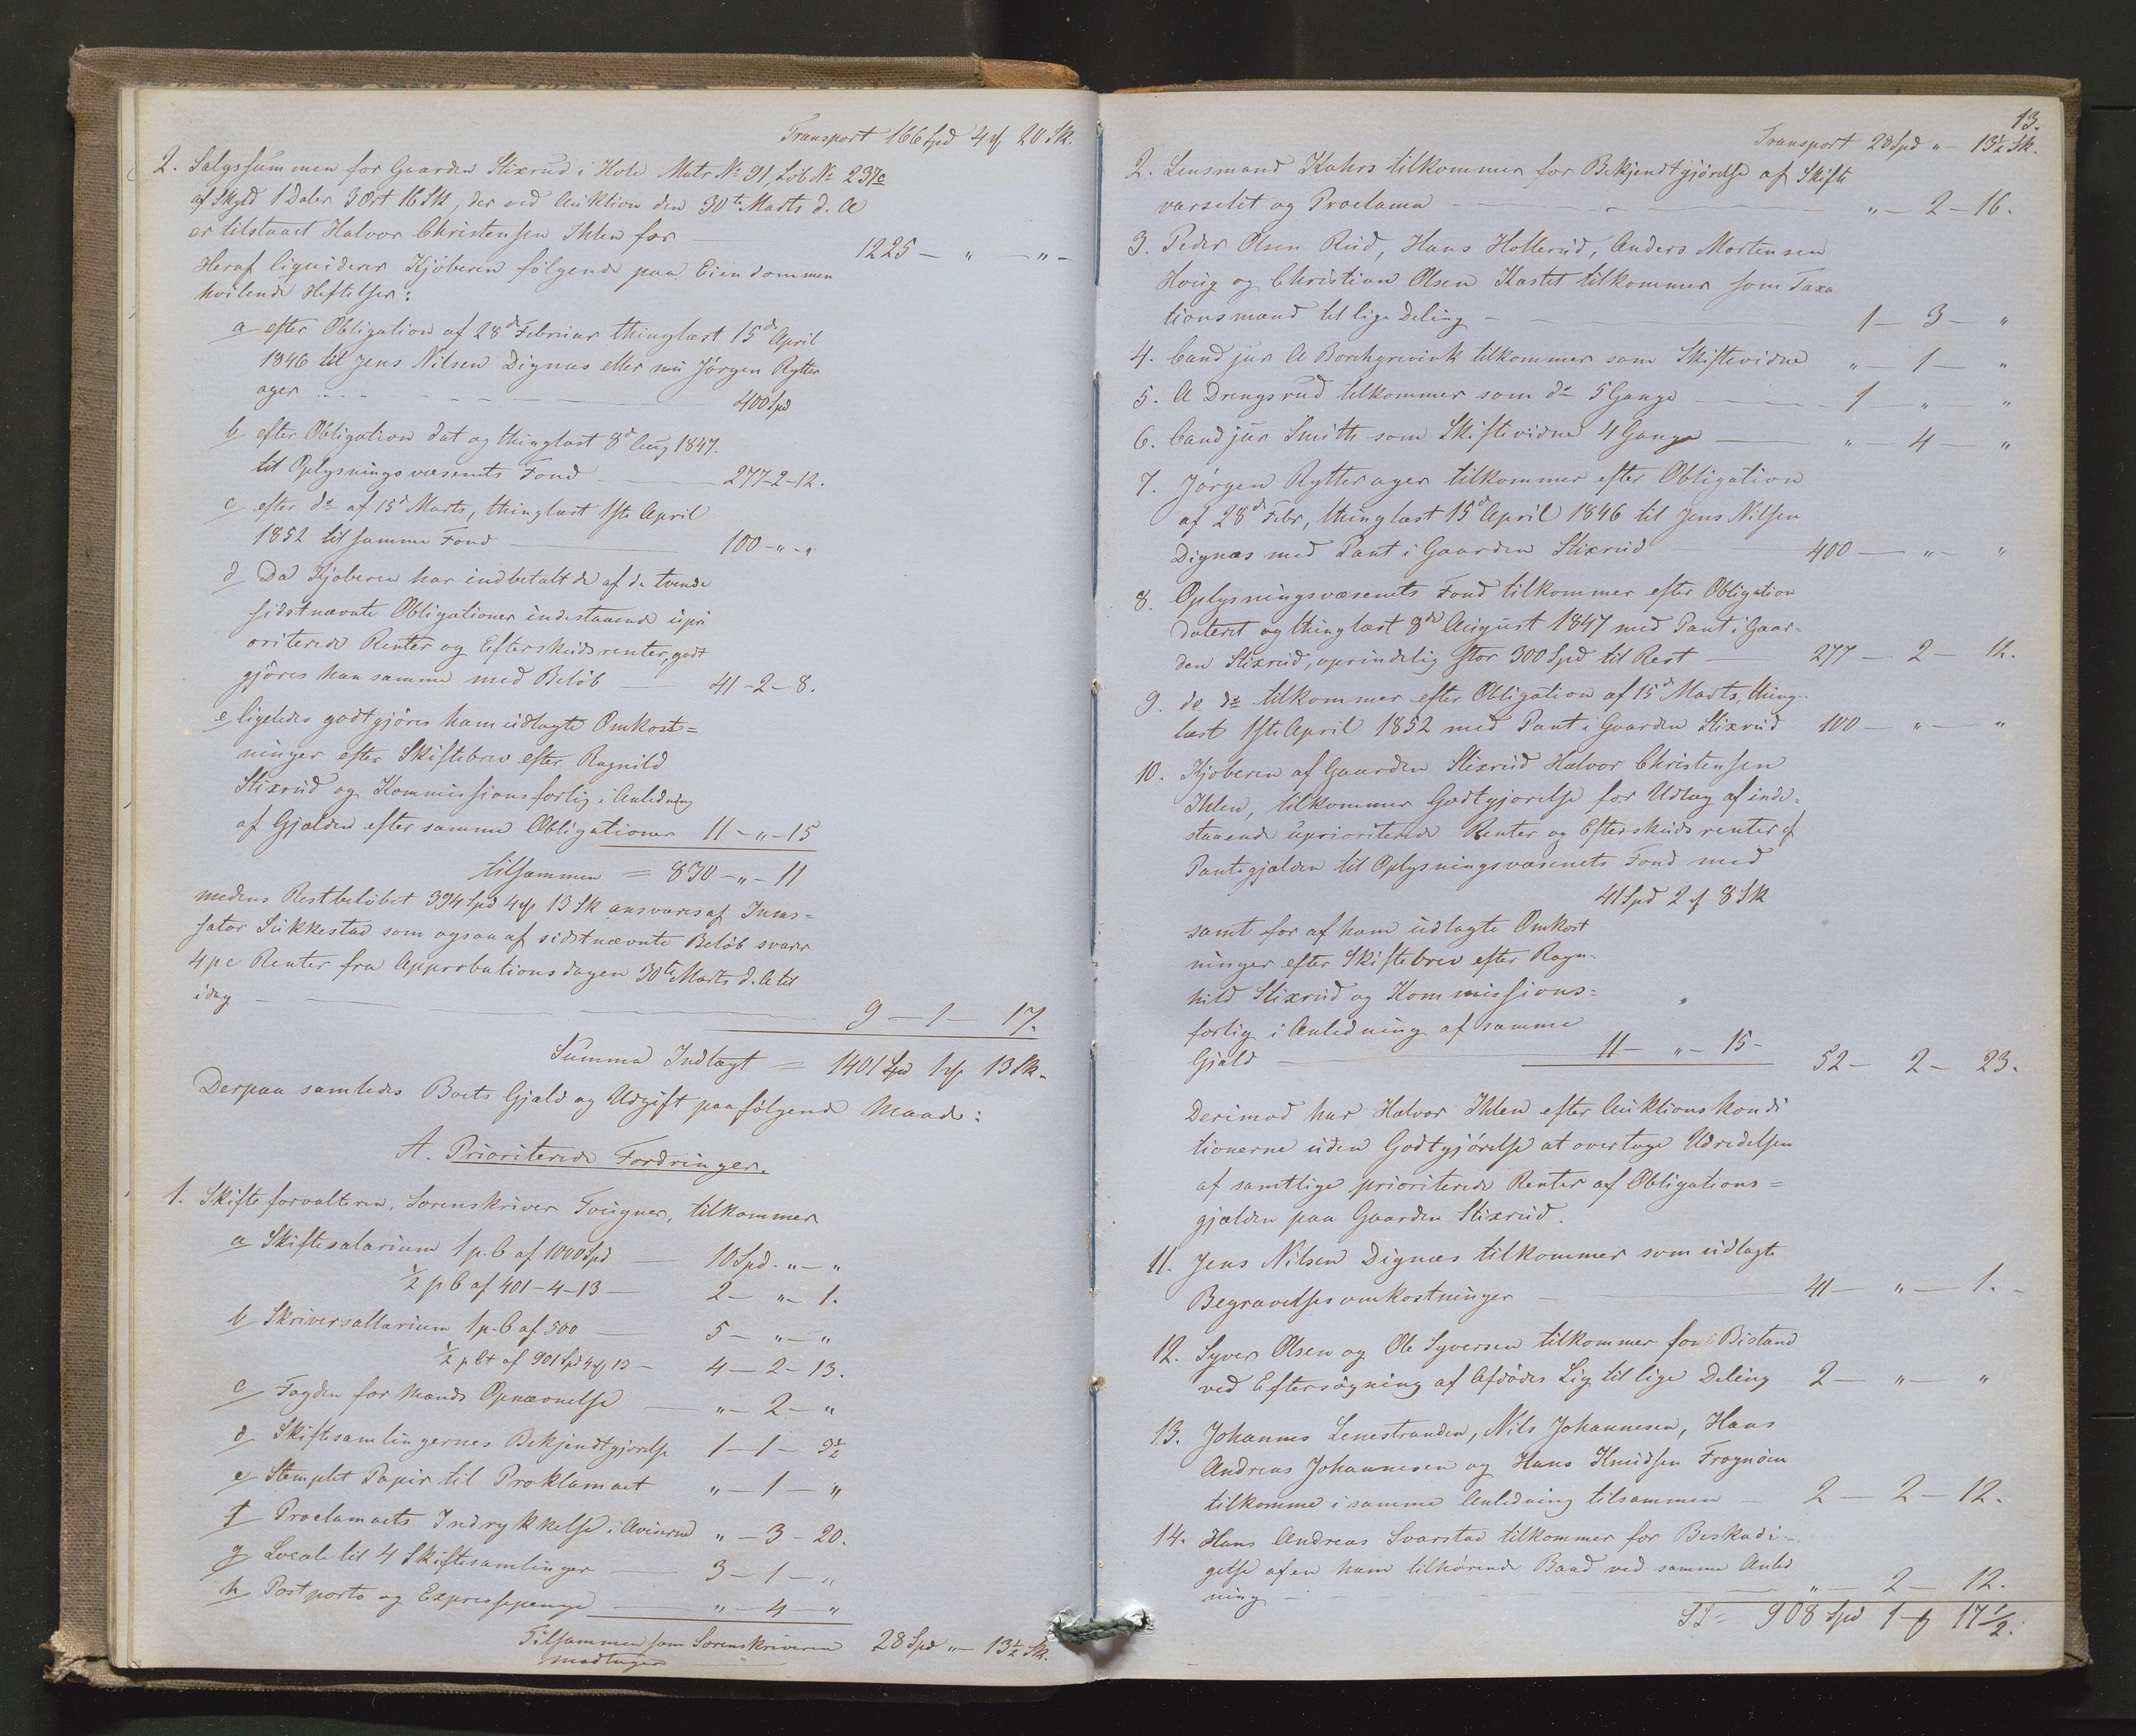 Transport 166 Spd 4 ß 20 Sk.
2. Salgssummen for Gaarden Stixrud i Hole Matr No 91, Løb No 237c
af Skyld 1 Daler 3 Ort 16 Sk, der ved Auktion den 30te Marts d. A
er tilslaaet Halvor Christensen Ihlen for 1225 - " - " -
Heraf liqviderer Kjøberen følgende paa Eiendommen
hvilende Heftelser:
a efter Obligation af 28de Februar thinglæst 15de April
1846 til Jens Nilsen Dignæs eller nu Jørgen Rytter
ager 400 Spd
b efter Obligation dat og thinglæst 8de Aug 1847.
til Oplysningsvæsenets Fond 277-2-12.
c efter do af 15de Marts, thinglæst 1ste April
1852 til samme Fond 100 - " - "
d Da Kjøberen har indbetalt de af de tvende
sidstnævnte Obligationer indestaaende upri
oriterede Renter og Efterskudsrenter, godt
gjøres han samme med Beløb 41-2-8.
e ligeledes godtgjøres ham udlagte Omkost=
ninger efter Skiftebrev efter Ragnild
Stixrud og Kommissionsforlig i Anledning
af Gjælden efter samme Obligationer 11 - " - 15
tilsammen = 830 - " - 11
medens Restbeløbet 394 Spd 4 ß 13 Sk ansvares af Incas=
sator Sukkestad som ogsaa af sidstnævnte Beløb svarer
4 pc Renter fra Approbationsdagen 30te Marts d. A til
idag 9 - 1 - 17.
Summa Indtægt = 1401 Spd 1 ß 13 Sk.
Derpaa samledes Boets Gjæld og Udgift paa følgende Maade:
A. Prioriterede Fordringer.
1. Skifteforvalteren, Sorenskriver Tveigner, tilkommer
a Skiftesalarium 1 p. C af 1000 Spd 10 Spd. " - "
½ p C af 401-4-13 - 2 - " - 1.
b Skriversallarium 1 p. C af 500 5 - " - "
½ p Ct af 901 Spd 4 ß 13 - 4 - 2 - 13.
c Fogden for Mænds Opnævnelse " - 2 - "
d Skiftesamlingernes Bekjendtgjørelse 1 - 1 - 3½
e Stemplet Papir til Proklamaet " - 1 - "
f Proclamaets Indrykkelse i Aviserne " - 3 - 20.
g Locale til 4 Skiftesamlinger 3 - 1 - "
h Postporto og Expressepenge " - 4 - "
Tilsammen som Sorenskriveren 28 Spd " - 13½ Sk.
modtager
13.
Transport 28 Spd " - 13½ Sk.
2. Lensmand Kahrs tilkommer for Bekjendtgjørelse af Skifte
varselet og Proclama " - 2 - 16.
3. Peder Olsen Rud, Hans Hollerud, Anders Mortensen
Houg og Christian Olsen Kastet tilkommer som Taxa
tionsmænd til lige Deling - 1 - 3 - "
4. Cand jur A Borchgrevink tilkommer som Skiftevidne " - 1 - "
5. A Drengsrud tilkommer som do 5 Gange 1 - " "
6. Cand jur Smith som Skiftevidne 4 Gange " - 4 - "
7. Jørgen Rytterager tilkommer efter Obligation
af 28de Febr, thinglæst 15de April 1846 til Jens Nilsen
Dignæs med Pant i Gaarden Stixrud 400 - " - "
8. Oplysningsvæsenets Fond tilkommer efter Obligation
dateret og thinglæst 8de August 1847 med Pant i Gaar-
den Stixrud, oprindelig stor 300 Spd til Rest 277 - 2 - 12.
9. do do tilkommer efter Obligation af 15de Marts, thing-
læst 1ste April 1852 med Pant i Gaarden Stixrud 100 - " - "
10. Kjøberen af Gaarden Stixrud Halvor Christensen
Ihlen, tilkommer Godtgjørelse for Udlæg af inde=
staaende uprioriterede Renter og Efterskudsrenter af
Pantegjælden til Oplysningsvæsenets Fond med
41 Spd 2 ß 8 Sk
samt for af ham udlagte Omkost
ninger efter Skiftebrev efter Ragn-
hild Stixrud og Kommissions=
forlig i Anledning af samme
Gjæld 11 - " - 15 - 52 - 2 - 23.
Derimod har Halvor Ihlen efter Auktionskondi
tionerne uden Godtgjørelse at overtage Udredelsen
af samtlige prioriterede Renter af Obligations=
gjælden paa Gaarden Stixrud.
11. Jens Nilsen Dignæs tilkommer som udlagte
Begravelsesomkostninger - 41 - " - 1. -
12. Syver Olsen og Ole Syversen tilkommer for Bistand
ved Eftersøgning af Afdødes Lig til lige Deling 2 - " - "
13. Johannes Lenestranden, Nils Johannesen, Hans
Andreas Johannesen og Hans Knudsen Frognøen
tilkomme i samme Anledning tilsammen - 2 - 2 - 12.
14. Hans Andreas Svarstad tilkommer for Beskadi-
gelse af en ham tilhørende Baad ved samme Anled
ning - " - 2 - 12.
908 Spd 1 ß 17½.